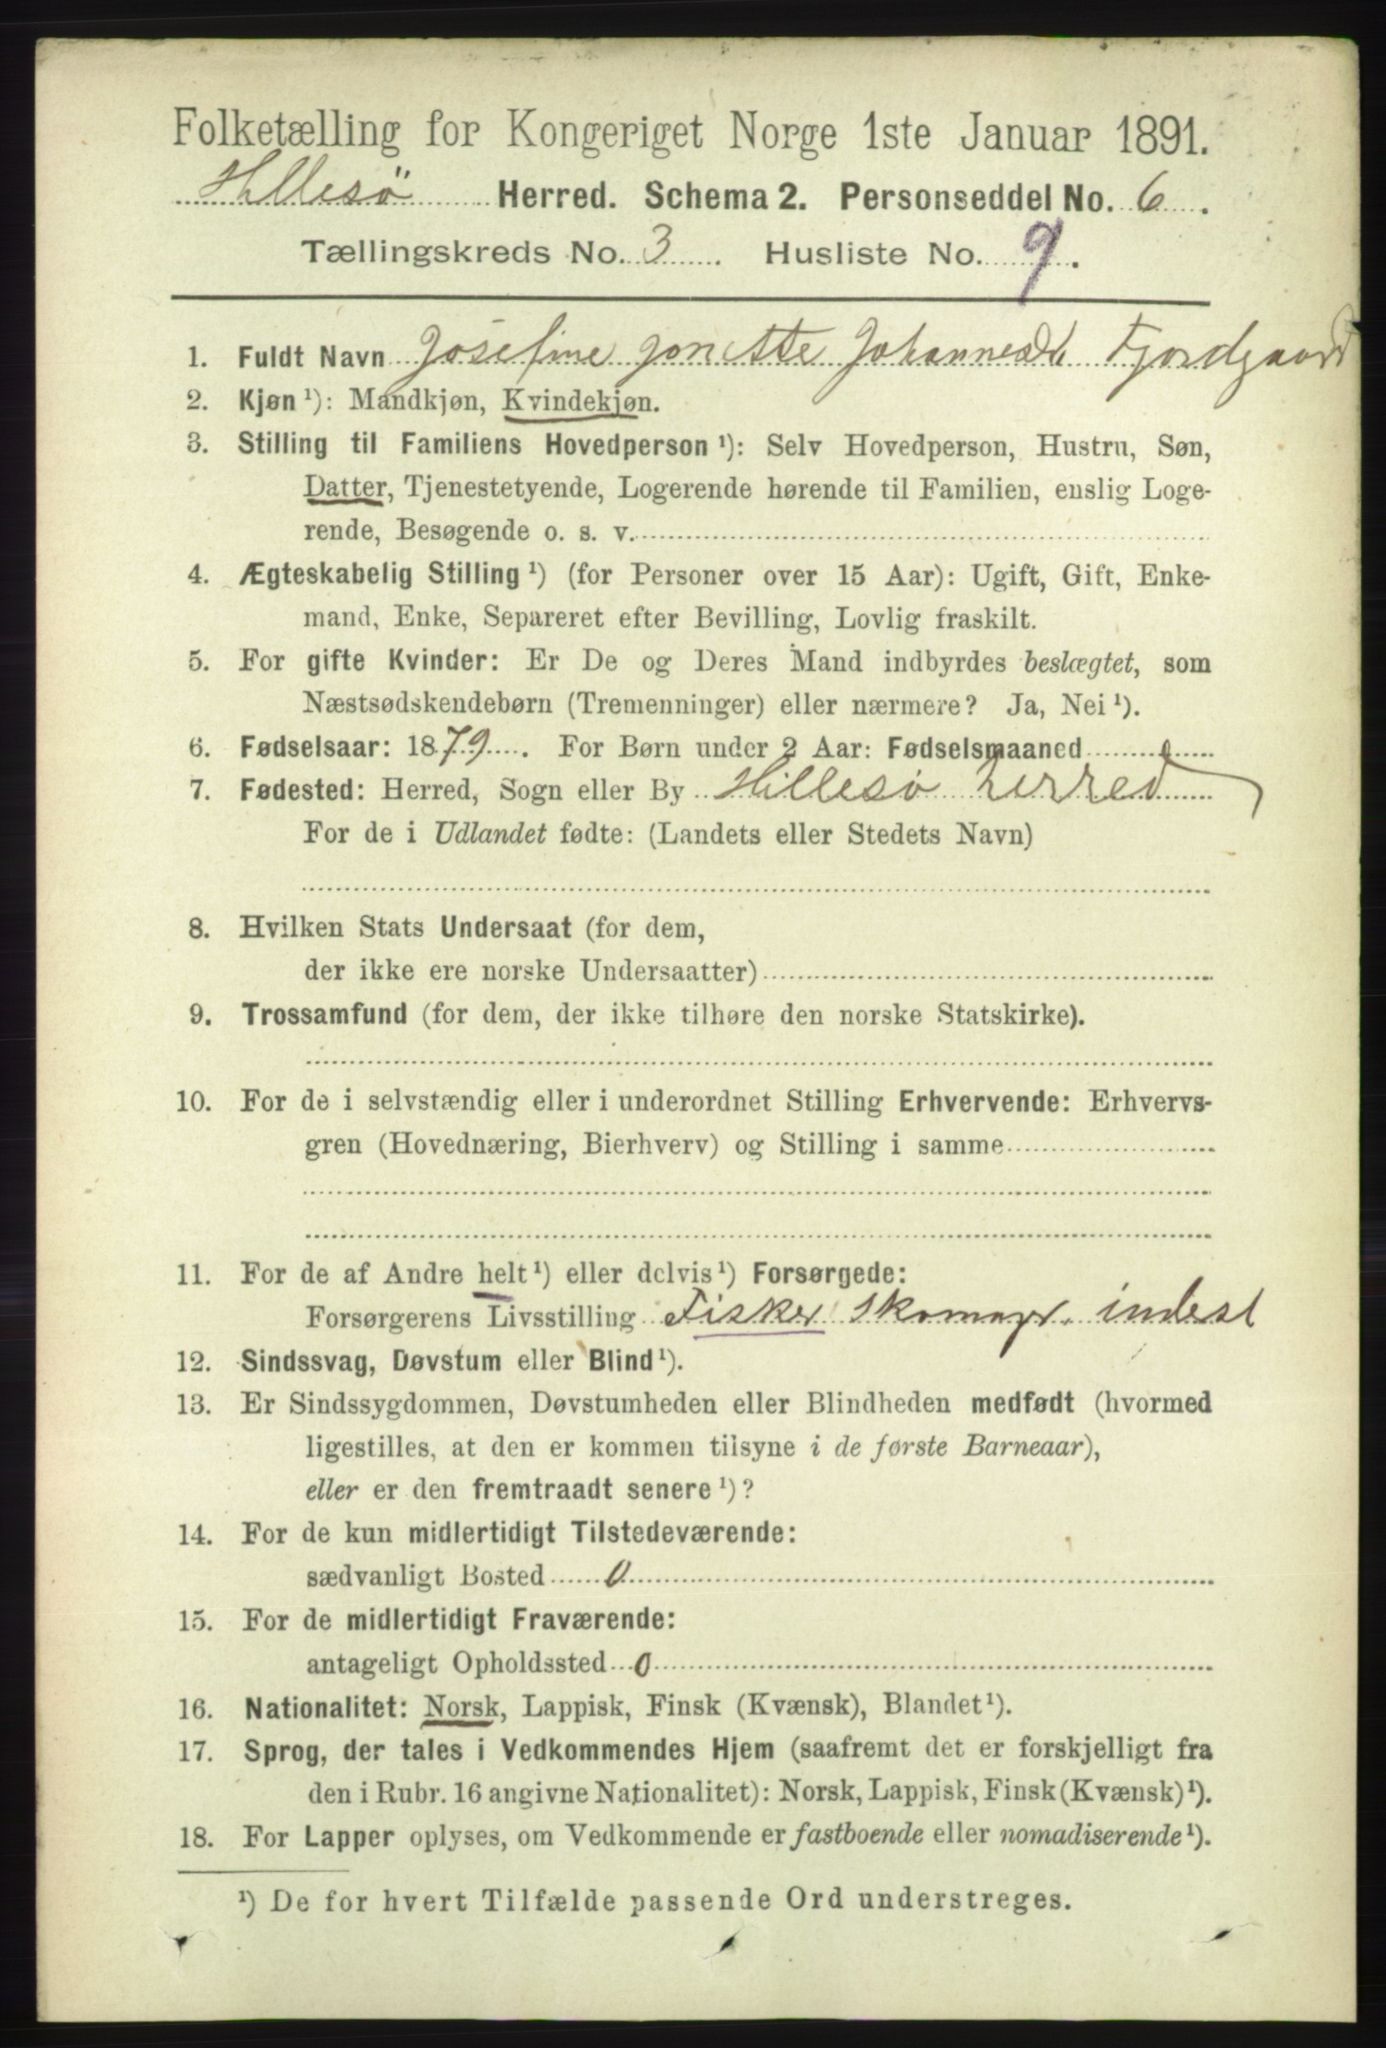 Folketælling for Kongeriget Norge 1ste Januar 1891.
Hillesö Herred. Schema 2. Personseddel No. 6.
Tællingskreds No. 3. Husliste No. 9.
1. Fuldt Navn Josefine Jonette Fjordgaard
2. Kjøn ¹): Mandkjøn, Kvindekjøn.
3. Stilling til Familiens Hovedperson ¹): Selv Hovedperson, Hustru, Søn,
Datter, Tjenestetyende, Logerende hørende til Familien, enslig Loge-
rende, Besøgende o. s. v.
4. Ægteskabelig Stilling ¹) (for Personer over 15 Aar): Ugift, Gift, Enke-
mand, Enke, Separeret efter Bevilling, Lovlig fraskilt.
5. For gifte Kvinder: Er De og Deres Mand indbyrdes beslægtet, som
Næstsødskendebørn (Tremenninger) eller nærmere? Ja, Nei ¹).
6. Fødselsaar: 1879. For Børn under 2 Aar: Fødselsmaaned
7. Fødested: Herred, Sogn eller By Hillesö Herred
For de i Udlandet fødte: (Landets eller Stedets Navn)
8. Hvilken Stats Undersaat (for dem,
der ikke ere norske Undersaatter)
9. Trossamfund (for dem, der ikke tilhøre den norske Statskirke).
10. For de i selvstændig eller i underordnet Stilling Erhvervende: Erhvervs-
gren (Hovednæring, Bierhverv) og Stilling i samme
11. For de af Andre helt ¹) eller delvis ¹) Forsørgede:
Forsørgerens Livsstilling Fisker Skomager indest
12. Sindssvag, Døvstum eller Blind ¹).
13. Er Sindssygdommen, Døvstumheden eller Blindheden medfødt (hvormed
ligestilles, at den er kommen tilsyne i de første Barneaar),
eller er den fremtraadt senere ¹)?
14. For de kun midlertidigt Tilstedeværende:
sædvanligt Bosted 0
15. For de midlertidigt Fraværende:
antageligt Opholdssted 0
16. Nationalitet: Norsk, Lappisk, Finsk (Kvænsk), Blandet ¹).
17. Sprog, der tales i Vedkommendes Hjem (saafremt det er forskjelligt fra
den i Rubr. 16 angivne Nationalitet): Norsk, Lappisk, Finsk (Kvænsk) ¹).
18. For Lapper oplyses, om Vedkommende er fastboende eller nomadiserende ¹).
¹) De for hvert Tilfælde passende Ord understreges.